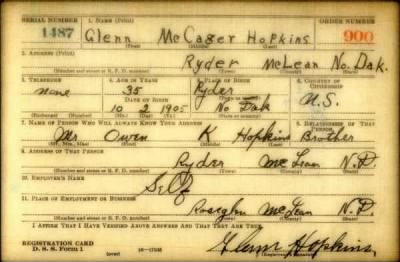 SERIAL NUMBER 1. NAME (Print) ORDER NUMBER
1487 Glenn McCager Hopkins 900
(First) (Middle) (Last)
2. ADDRESS (Print)
Ryder McLean No. Dak.
(Number and street or R. F. D. number) (Town) (County) (State)
3. TELEPHONE 4. AGE IN YEARS 5. PLACE OF BIRTH 6. COUNTRY OF CITIZENSHIP
none 35 Ryder
DATE OF BIRTH
10 2 1905 No Dak U.S.
(Exchange) (Number) (Mo.) (Day) (Yr.) (State or country)
7. NAME OF PERSON WHO WILL ALWAYS KNOW YOUR ADDRESS 8. RELATIONSHIP OF THAT PERSON
Mr Owen K Hopkins Brother
(Mr., Mrs., Miss) (First) (Middle) (Last)
9. ADDRESS OF THAT PERSON
Ryder McLean N.D.
(Number and street or R. F. D. number) (Town) (County) (State)
10. EMPLOYER'S NAME
Self
11. PLACE OF EMPLOYMENT OR BUSINESS
McLean N.D.
(Number and street or R. F. D. number) (Town) (County) (State)
I AFFIRM THAT I HAVE VERIFIED ABOVE ANSWERS AND THAT THEY ARE TRUE.
REGISTRATION CARD
D. S. S. Form 1 (over) Glenn Hopkins
(Registrant's signature)